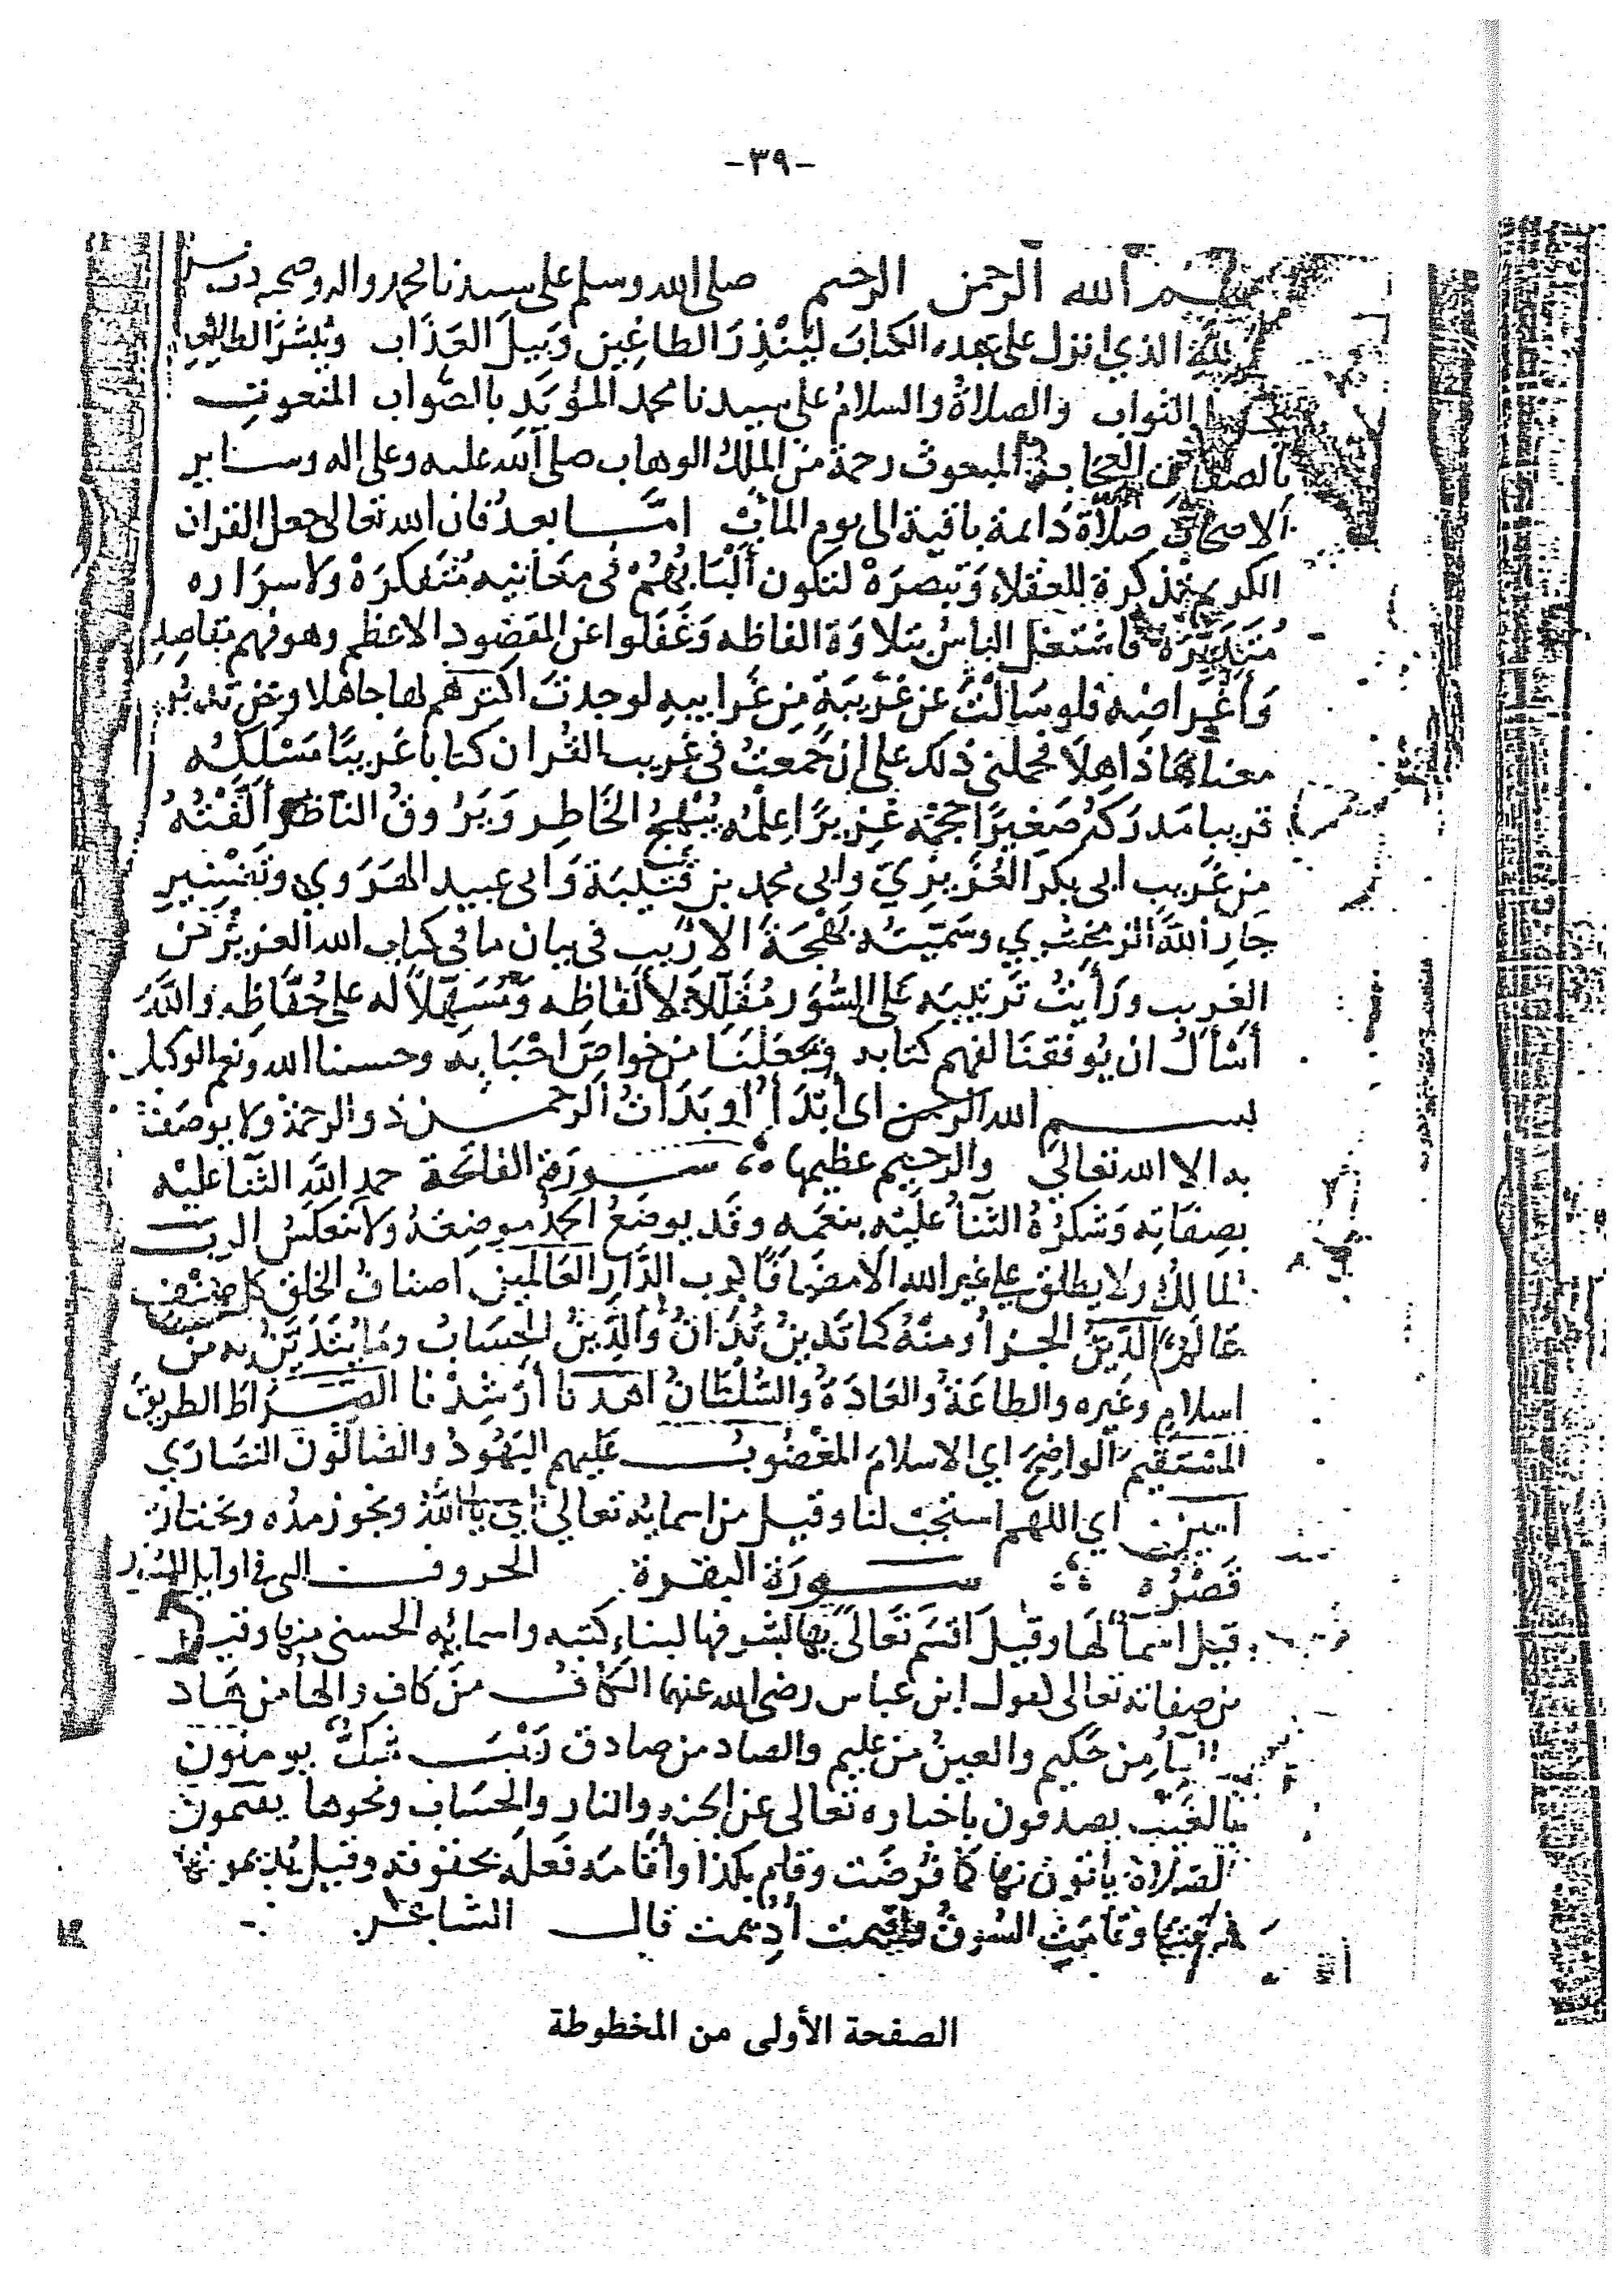 -٣٩-
بسم الله الرحمن الرحيم صلى الله وسلم على سيدنا محمد واله وصحبه
لله الذي انزل على عبده الكتاب ليُنْذِرَ الطاغين وَبِيلَ العَذَاب ويُبَشّرَ الطايعين
الثواب والصلاةُ والسلامُ على سيدنا محمد المؤيَّد بالصَّواب المنعوت
بالصفا المبعوث رحمة من الملك الوهاب صلى الله عليه وعلى اله وساير
الاصحاب صلاةً دَايمة باقية الى يوم المآب امّا بعد فان الله تعالى جعل القران
الكريم تذكرة للعقلاء وَتبصرَة لتكون أَلْبَابُهُمْ في مَعَانيه مُتَفَكِّرَة ولاسرَاره
مُتَدَبِّرَة فاشتَغل الناسُ بتلاوَة الفاظه وَغَفَلوا عن المقصُود الاعظم وهو فهم مقاصِدِه
وَأَغْرَاضِه فلو سَأَلْتَ عن غَريبَة مِن غَرايبِه لوجدتَ اكثرهم لها جاهلا وعن تدبُر
معناها ذَاهِلًا فحملني ذلك على ان جمعتُ في غريب القُران كتابا غريبًا مَسْلَكُه
قريبا مَدركُه صَغيرًا حجمُه غزيرًا عِلمُه يُبْهِجُ الخَاطِر وَيَرُوقُ الناظر أَلَّفْتُهُ
من غَريب ابي بكر العُزَيزيّ وابي محمد بن قُتَيبَة وَابى عبيد الهَرَوي وتَفْسير
جَار اللهِ الزمخشري وسَمّيتُه بَهْجَةَ الاريب في بيان ما في كتاب الله العزيز من
الغريب ورَأَيتُ ترتيبَه عَلى السُّوَر مُقَلِّلًا لأَلفاظه وَمُسَهِّلًا له على حُفّاظِه واللهَ
أَسْأَلُ ان يُوفقنَا لفهم كتابه ويَجعَلنَا من خواصّ احْبَابِه وحسبنا الله ونعم الوكيل
بسم الله الرحمن اى أَبْتَدَأ او بَدَاتُ الرحمن ذو الرحمَة ولا يوصَفُ
به الا الله تعالى والرحيم عظيمها سورة الفاتحة حمد اللهِ الثَّنا عليْه
بصِفاتِه وَشكرُهُ الثَّنا عَليْه بنعَمِه وقد يوضَعُ الحمدُ موضعَهُ ولا ينعَكسُ الربّ
المالكُ ولا يطلق على غير الله الا مضَافًا كرب الدَّار العَالَمين اصنافُ الخلق كل صِنْف
عَالَم الدّينُ الجزاُ ومنهُ كما تَدينُ تُدَانُ والدّينُ الحسَابُ ومَا يُتَدَيَّنُ به من
اسلام وغيره والطاعَةُ والعَادَةُ والسُّلْطَانُ اهدنَا أَرْشِدْنا الصّرَاطَ الطريقَ
المستقيم الواضحَ اي الاسلامَ المغضُوبِ عَليهم اليَهُودُ والضالّون النصَاري
امين اي اللهم استجبْ لنا وقيل من اسمايه تعالى اي يا اللهُ ويجوز مدُه ويختار
قَصْرُه سُورَة البقرة الحروف التى في اوايل السُّوَر
قيل اسمآُ لَها وقيلَ اقسَم تَعَالَى بها لشرفها لبناء كتبه واسمايِه الحسنى منها وقيل
من صفاته تعالى لقول ابن عباس رضى الله عنهما الكاف من كافٍ والها من هَاد
اليآُ مِن حَكيم والعينُ من عليم والصاد من صادق رَيْبَ شَكَّ يومنُون
بالغَيْب يصدقون باخباره تعالى عن الجنة والنار والحسَاب ونحوها يقيمون
الصلاة ياتون بها كما فُرِضَت وقام بكذا وأقَامَه فَعلَهُ بحقوقه وقيل يُديمونها
وقَامَتِ السُوقُ واقيمت أُدِيمت قال الشاعر
الصفحة الأولى من المخطوطة